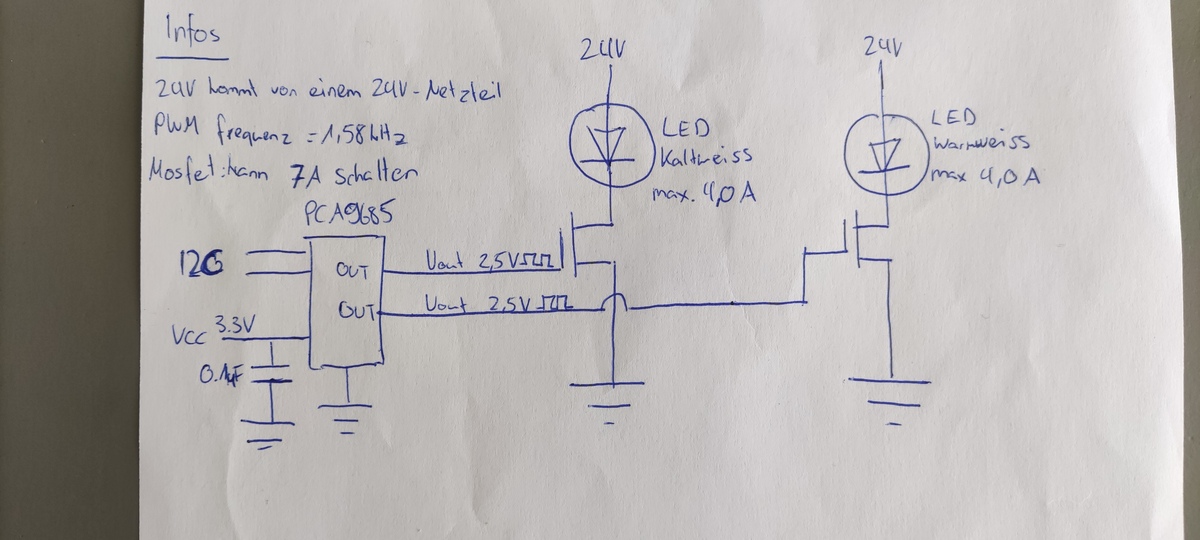 Infos
24V kommt von einem 24V-Netzteil
PWM frequenz = 1,58kHz
Mosfet: kann 7A schalten
PCA9685
I2C
OUT
OUT
Vout 2,5V
Vout 2,5V
VCC 3.3V
0.1µF
24V
LED
Kaltweiss
max. 4,0A
24V
LED
Warmweiss
max 4,0A